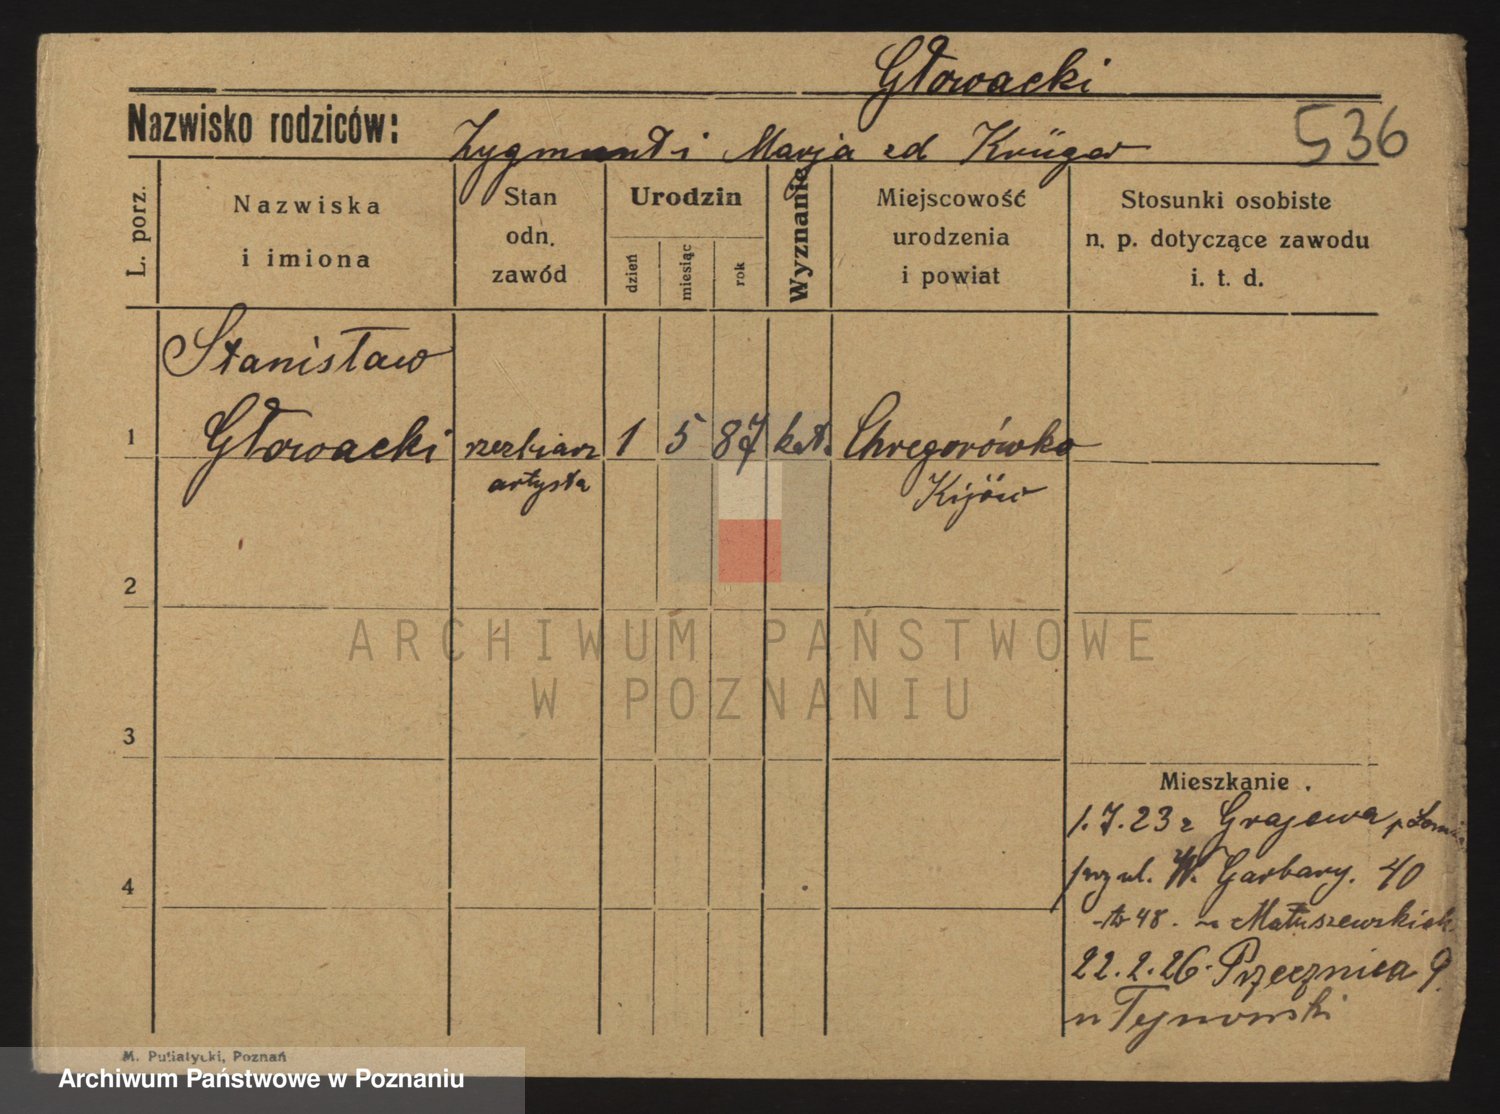 Głowacki
Nazwisko rodziców:
536
Zygmunt i Marja zd Krüger
L. porz.
Nazwiska
i imiona
Stan
odn.
zawód
Urodzin
dzień
miesiąc
rok
Wyznanie
Miejscowość
urodzenia
i powiat
Stosunki osobiste
n. p. dotyczące zawodu
i. t. d.
Stanisław
1 Głowacki rzezbiarz 1 5 87 kat. Chregorówka
artysta Kijów
2
ARCHIWUM PAŃSTWOWE
W POZNANIU
3
Mieszkanie.
1.7.23 z Grajewa p
4
przy ul. W. Garbary. 40
48. Matuszewskich
22.2.26. Przecznica 9.
M. Putiatycki, Poznań
Archiwum Państwowe w Poznaniu